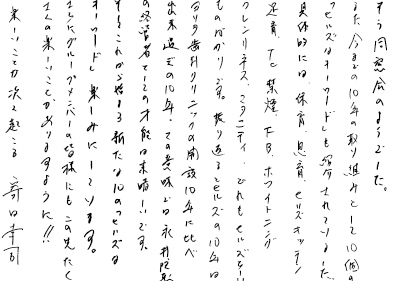 そう同窓会のようでした。
また、今までの10年の取り組みとして10個の
"セルズはキーワードしも紹介されていました。
具体的には、保育、患育、セルズオッチ
足育、TC、禁煙、FB、ホワイトニング
フレンドリネス、マタニティ、どれもセルズら
ものばかりです。振り返るとセルズの10年は
歯科クリニックの開設10年に比べ
出来過ぎの10年、その意味では永井院長
の経営者としての才能は素晴しいです。
そしてこれから始まる新たな10のっセルズる
キーワードし楽しみにしています。
そしてグループメンバーの皆様にもこの先たく
さんの楽しいことがありますように!!
楽しいことが次々起こる